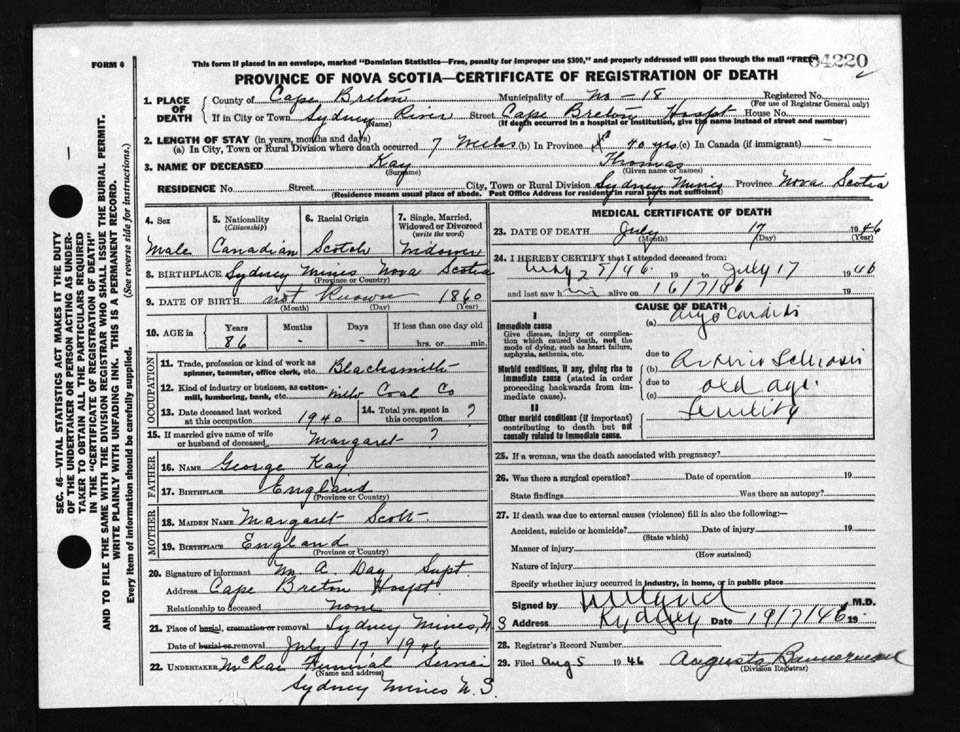 FORM 6
This form if placed in an envelope, marked "Dominion Statistics—Free, penalty for improper use $300," and properly addressed will pass through the mail "FREE"
64220
PROVINCE OF NOVA SCOTIA—CERTIFICATE OF REGISTRATION OF DEATH
1. PLACE OF DEATH County of Cape Breton Municipality of No - 18 Registered No.
(For use of Registrar General only)
If in City or Town Sydney River Street Cape Breton Hospt House No.
(Name) (If death occurred in a hospital or institution, give the name instead of street and number)
2. LENGTH OF STAY (in years, months and days)
(a) In City, Town or Rural Division where death occurred 7 Weeks (b) In Province 40 yrs. (c) In Canada (if immigrant) -
3. NAME OF DECEASED Kay Thomas
(Surname) (Given name or names)
RESIDENCE No. Street City, Town or Rural Division Sydney Mines Province Nova Scotia
(Residence means usual place of abode. Post Office Address for residents in rural parts not sufficient)
4. Sex Male
5. Nationality (Citizenship) Canadian
6. Racial Origin Scotch
7. Single, Married, Widowed or Divorced (write the word) Widower
8. BIRTHPLACE Sydney Mines Nova Scotia
(Province or Country)
9. DATE OF BIRTH not Known 1860
(Month) (Day) (Year)
10. AGE in Years Months Days If less than one day old
86 - - hrs. or min.
OCCUPATION
11. Trade, profession or kind of work as spinner, teamster, office clerk, etc. Blacksmith
12. Kind of industry or business, as cotton-mill, lumbering, bank, etc. Coal Co
13. Date deceased last worked at this occupation 1940
14. Total yrs. spent in this occupation ?
15. If married give name of wife or husband of deceased Margaret ?
FATHER
16. NAME George Kay
17. BIRTHPLACE England
(Province or Country)
MOTHER
18. MAIDEN NAME Margaret Scott
19. BIRTHPLACE England
(Province or Country)
20. Signature of informant M A. Day Supt.
Address Cape Breton Hospt.
Relationship to deceased none
21. Place of burial, cremation or removal Sydney Mines, N
Date of burial or removal July 17 1946
22. UNDERTAKER McRae Funeral Service
(Name and address)
Sydney Mines N.S.
MEDICAL CERTIFICATE OF DEATH
23. DATE OF DEATH July 17 1946
(Month) (Day) (Year)
24. I HEREBY CERTIFY that I attended deceased from:
May 25/46. 19 to July 17 1946
and last saw him alive on 16/7/ 19
CAUSE OF DEATH
I
Immediate cause
Give disease, injury or complication which caused death, not the mode of dying, such as heart failure, asphyxia, asthenia, etc.
(a)
due to
Morbid conditions, if any, giving rise to immediate cause (stated in order proceeding backwards from immediate cause).
(b)
due to old age.
(c) Senility
II
Other morbid conditions (if important) contributing to death but not causally related to immediate cause.
25. If a woman, was the death associated with pregnancy?
26. Was there a surgical operation? Date of operation 19
State findings Was there an autopsy?
27. If death was due to external causes (violence) fill in also the following:—
Accident, suicide or homicide? Date of injury 19
(State which)
Manner of injury
(How sustained)
Nature of injury
Specify whether injury occurred in industry, in home, or in public place
Signed by M.D.
Address Sydney Date 19/7/46 19
28. Registrar's Record Number
29. Filed Aug 5 1946 Augusta
(Division Registrar)
SEC. 46—VITAL STATISTICS ACT MAKES IT THE DUTY
OF THE UNDERTAKER OR PERSON ACTING AS UNDER-
TAKER TO OBTAIN ALL THE PARTICULARS REQUIRED
IN THE "CERTIFICATE OF REGISTRATION OF DEATH"
AND TO FILE THE SAME WITH THE DIVISION REGISTRAR WHO SHALL ISSUE THE BURIAL PERMIT.
WRITE PLAINLY WITH UNFADING INK. THIS IS A PERMANENT RECORD.
Every item of information should be carefully supplied. (See reverse side for instructions.)